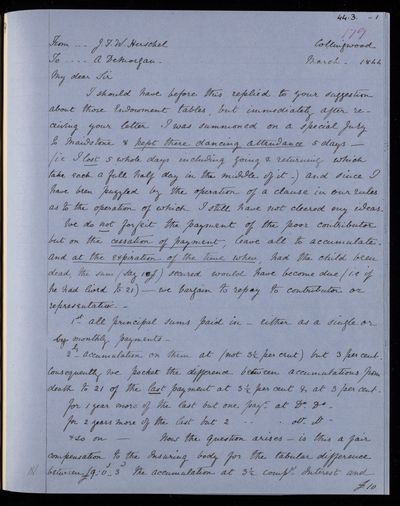 44.3. -1
179
From -- J. F. W. Herschel Collingwood
To ---- A DeMorgan. March - 1844
My dear Sir
I should have before this replied to your suggestion
about those Endowment tables, but immediately after re-
ceiving your letter I was summoned on a special Jury
to Maidstone & kept there dancing attendance 5 days -
(ie I lost 5 whole days including going & returning which
take each a full half day in the middle of it.) and since I
have been puzzled by the operation of a clause in our rules
as to the operation of which I still have not cleared my ideas.
We do not forfeit the payment of the poor contributor
but on the cessation of payment, leave all to accumulate.
and at the expiration of the time when, had the child been
dead, the sum (say 10£) secured would have become due (ie if
he had lived to 21) - we bargain to repay to contributor or
representative -
1st all principal sums paid in - either as a single or
by monthly payments -
2d accumulation on them at (not 3½ per cent) but 3 per cent.
Consequently we pocket the difference between accumulations from
death to 21 of the last payment at 3½ per cent & at 3 per cent -
for 1 year more of the last but one payt. at Do. Do -
for 2 years more of the last but 2 - - Do. Do -
& so on - Now the Question arises - is this a fair
compensation to the Insuring body for the tabular difference
between £9.0s.3d the accumulation at 3½ compd. Interest and
£10